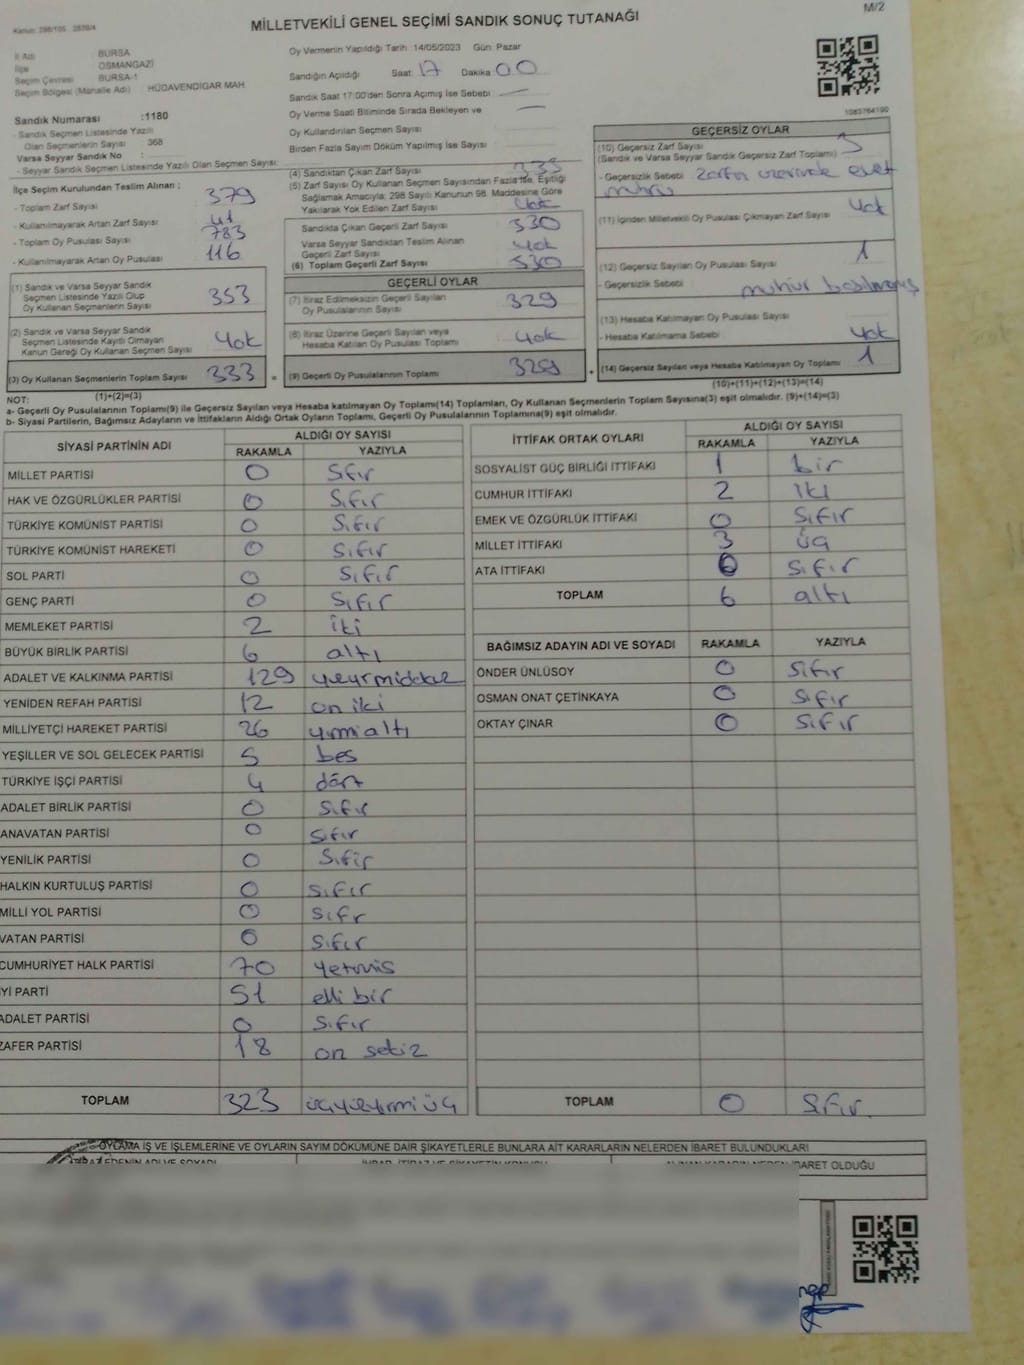 Kanun: 298/105 2839/4
MİLLETVEKİLİ GENEL SEÇİMİ SANDIK SONUÇ TUTANAĞI
M/2
İl Adı : BURSA
İlçe : OSMANGAZİ
Seçim Çevresi : BURSA-1
Seçim Bölgesi (Mahalle Adı) : HÜDAVENDİGAR MAH.
Sandık Numarası :1180
- Sandık Seçmen Listesinde Yazılı
Olan Seçmenlerin Sayısı : 368
Varsa Seyyar Sandık No :
- Seyyar Sandık Seçmen Listesinde Yazılı Olan Seçmen Sayısı:
Oy Vermenin Yapıldığı Tarih :14/05/2023 Gün: Pazar
Sandığın Açıldığı Saat: 17 Dakika: 00
Sandık Saat 17:00'den Sonra Açılmış İse Sebebi —
Oy Verme Saati Bitiminde Sırada Bekleyen ve —
Oy Kullandırılan Seçmen Sayısı
Birden Fazla Sayım Döküm Yapılmış İse Sayısı
1083764190
İlçe Seçim Kurulundan Teslim Alınan ;
- Toplam Zarf Sayısı 379
- Kullanılmayarak Artan Zarf Sayısı 41
- Toplam Oy Pusulası Sayısı 783
- Kullanılmayarak Artan Oy Pusulası 116
(1) Sandık ve Varsa Seyyar Sandık
Seçmen Listesinde Yazılı Olup
Oy Kullanan Seçmenlerin Sayısı 353
(2) Sandık ve Varsa Seyyar Sandık
Seçmen Listesinde Kayıtlı Olmayan
Kanun Gereği Oy Kullanan Seçmen Sayısı Yok
(3) Oy Kullanan Seçmenlerin Toplam Sayısı 333
(1)+(2)=(3)
(4) Sandıktan Çıkan Zarf Sayısı 333
(5) Zarf Sayısı Oy Kullanan Seçmen Sayısından Fazla İse, Eşitliği
Sağlamak Amacıyla; 298 Sayılı Kanunun 98. Maddesine Göre
Yakılarak Yok Edilen Zarf Sayısı Yok
Sandıkta Çıkan Geçerli Zarf Sayısı 330
Varsa Seyyar Sandıktan Teslim Alınan
Geçerli Zarf Sayısı Yok
(6) Toplam Geçerli Zarf Sayısı 330
GEÇERLİ OYLAR
(7) İtiraz Edilmeksizin Geçerli Sayılan
Oy Pusulalarının Sayısı 329
(8) İtiraz Üzerine Geçerli Sayılan veya
Hesaba Katılan Oy Pusulası Toplamı Yok
= (9) Geçerli Oy Pusulalarının Toplamı 329 +
GEÇERSİZ OYLAR
(10) Geçersiz Zarf Sayısı 3
(Sandık ve Varsa Seyyar Sandık Geçersiz Zarf Toplamı)
- Geçersizlik Sebebi zarfın üzerinde evet
mührü
(11) İçinden Milletvekili Oy Pusulası Çıkmayan Zarf Sayısı Yok
(12) Geçersiz Sayılan Oy Pusulası Sayısı 1
- Geçersizlik Sebebi mühür basılmamış
(13) Hesaba Katılmayan Oy Pusulası Sayısı
- Hesaba Katılmama Sebebi Yok
(14) Geçersiz Sayılan veya Hesaba Katılmayan Oy Toplamı 1
(10)+(11)+(12)+(13)=(14)
NOT:
a- Geçerli Oy Pusulalarının Toplamı(9) ile Geçersiz Sayılan veya Hesaba katılmayan Oy Toplamı(14) Toplamları, Oy Kullanan Seçmenlerin Toplam Sayısına(3) eşit olmalıdır. (9)+(14)=(3)
b- Siyasi Partilerin, Bağımsız Adayların ve İttifakların Aldığı Ortak Oyların Toplamı, Geçerli Oy Pusulalarının Toplamına(9) eşit olmalıdır.
SİYASİ PARTİNİN ADI ALDIĞI OY SAYISI
RAKAMLA YAZIYLA
MİLLET PARTİSİ 0 Sıfır
HAK VE ÖZGÜRLÜKLER PARTİSİ 0 Sıfır
TÜRKİYE KOMÜNİST PARTİSİ 0 Sıfır
TÜRKİYE KOMÜNİST HAREKETİ 0 Sıfır
SOL PARTİ 0 Sıfır
GENÇ PARTİ 0 Sıfır
MEMLEKET PARTİSİ 2 iki
BÜYÜK BİRLİK PARTİSİ 6 altı
ADALET VE KALKINMA PARTİSİ 129
YENİDEN REFAH PARTİSİ 12 on iki
MİLLİYETÇİ HAREKET PARTİSİ 26 yirmi altı
YEŞİLLER VE SOL GELECEK PARTİSİ 5 beş
TÜRKİYE İŞÇİ PARTİSİ 4 dört
ADALET BİRLİK PARTİSİ 0 Sıfır
ANAVATAN PARTİSİ 0 Sıfır
YENİLİK PARTİSİ 0 Sıfır
HALKIN KURTULUŞ PARTİSİ 0 Sıfır
MİLLİ YOL PARTİSİ 0 Sıfır
VATAN PARTİSİ 0 Sıfır
CUMHURİYET HALK PARTİSİ 70 yetmiş
İYİ PARTİ 51 elli bir
ADALET PARTİSİ 0 Sıfır
ZAFER PARTİSİ 18 on sekiz
TOPLAM 323 üçyüzyirmi üç
İTTİFAK ORTAK OYLARI ALDIĞI OY SAYISI
RAKAMLA YAZIYLA
SOSYALİST GÜÇ BİRLİĞİ İTTİFAKI 1 bir
CUMHUR İTTİFAKI 2 iki
EMEK VE ÖZGÜRLÜK İTTİFAKI 0 Sıfır
MİLLET İTTİFAKI 3 üç
ATA İTTİFAKI 0 Sıfır
TOPLAM 6 altı
BAĞIMSIZ ADAYIN ADI VE SOYADI RAKAMLA YAZIYLA
ÖNDER ÜNLÜSOY 0 Sıfır
OSMAN ONAT ÇETİNKAYA 0 Sıfır
OKTAY ÇINAR 0 Sıfır
TOPLAM 0 Sıfır
OYLAMA İŞ VE İŞLEMLERİNE VE OYLARIN SAYIM DÖKÜMÜNE DAİR ŞİKAYETLERLE BUNLARA AİT KARARLARIN NELERDEN İBARET BULUNDUKLARI
İTİRAZ EDENİN ADI VE SOYADI İHBAR, İTİRAZ VE ŞİKAYETİN KONUSU ALINAN KARARIN NEDEN İBARET OLDUĞU